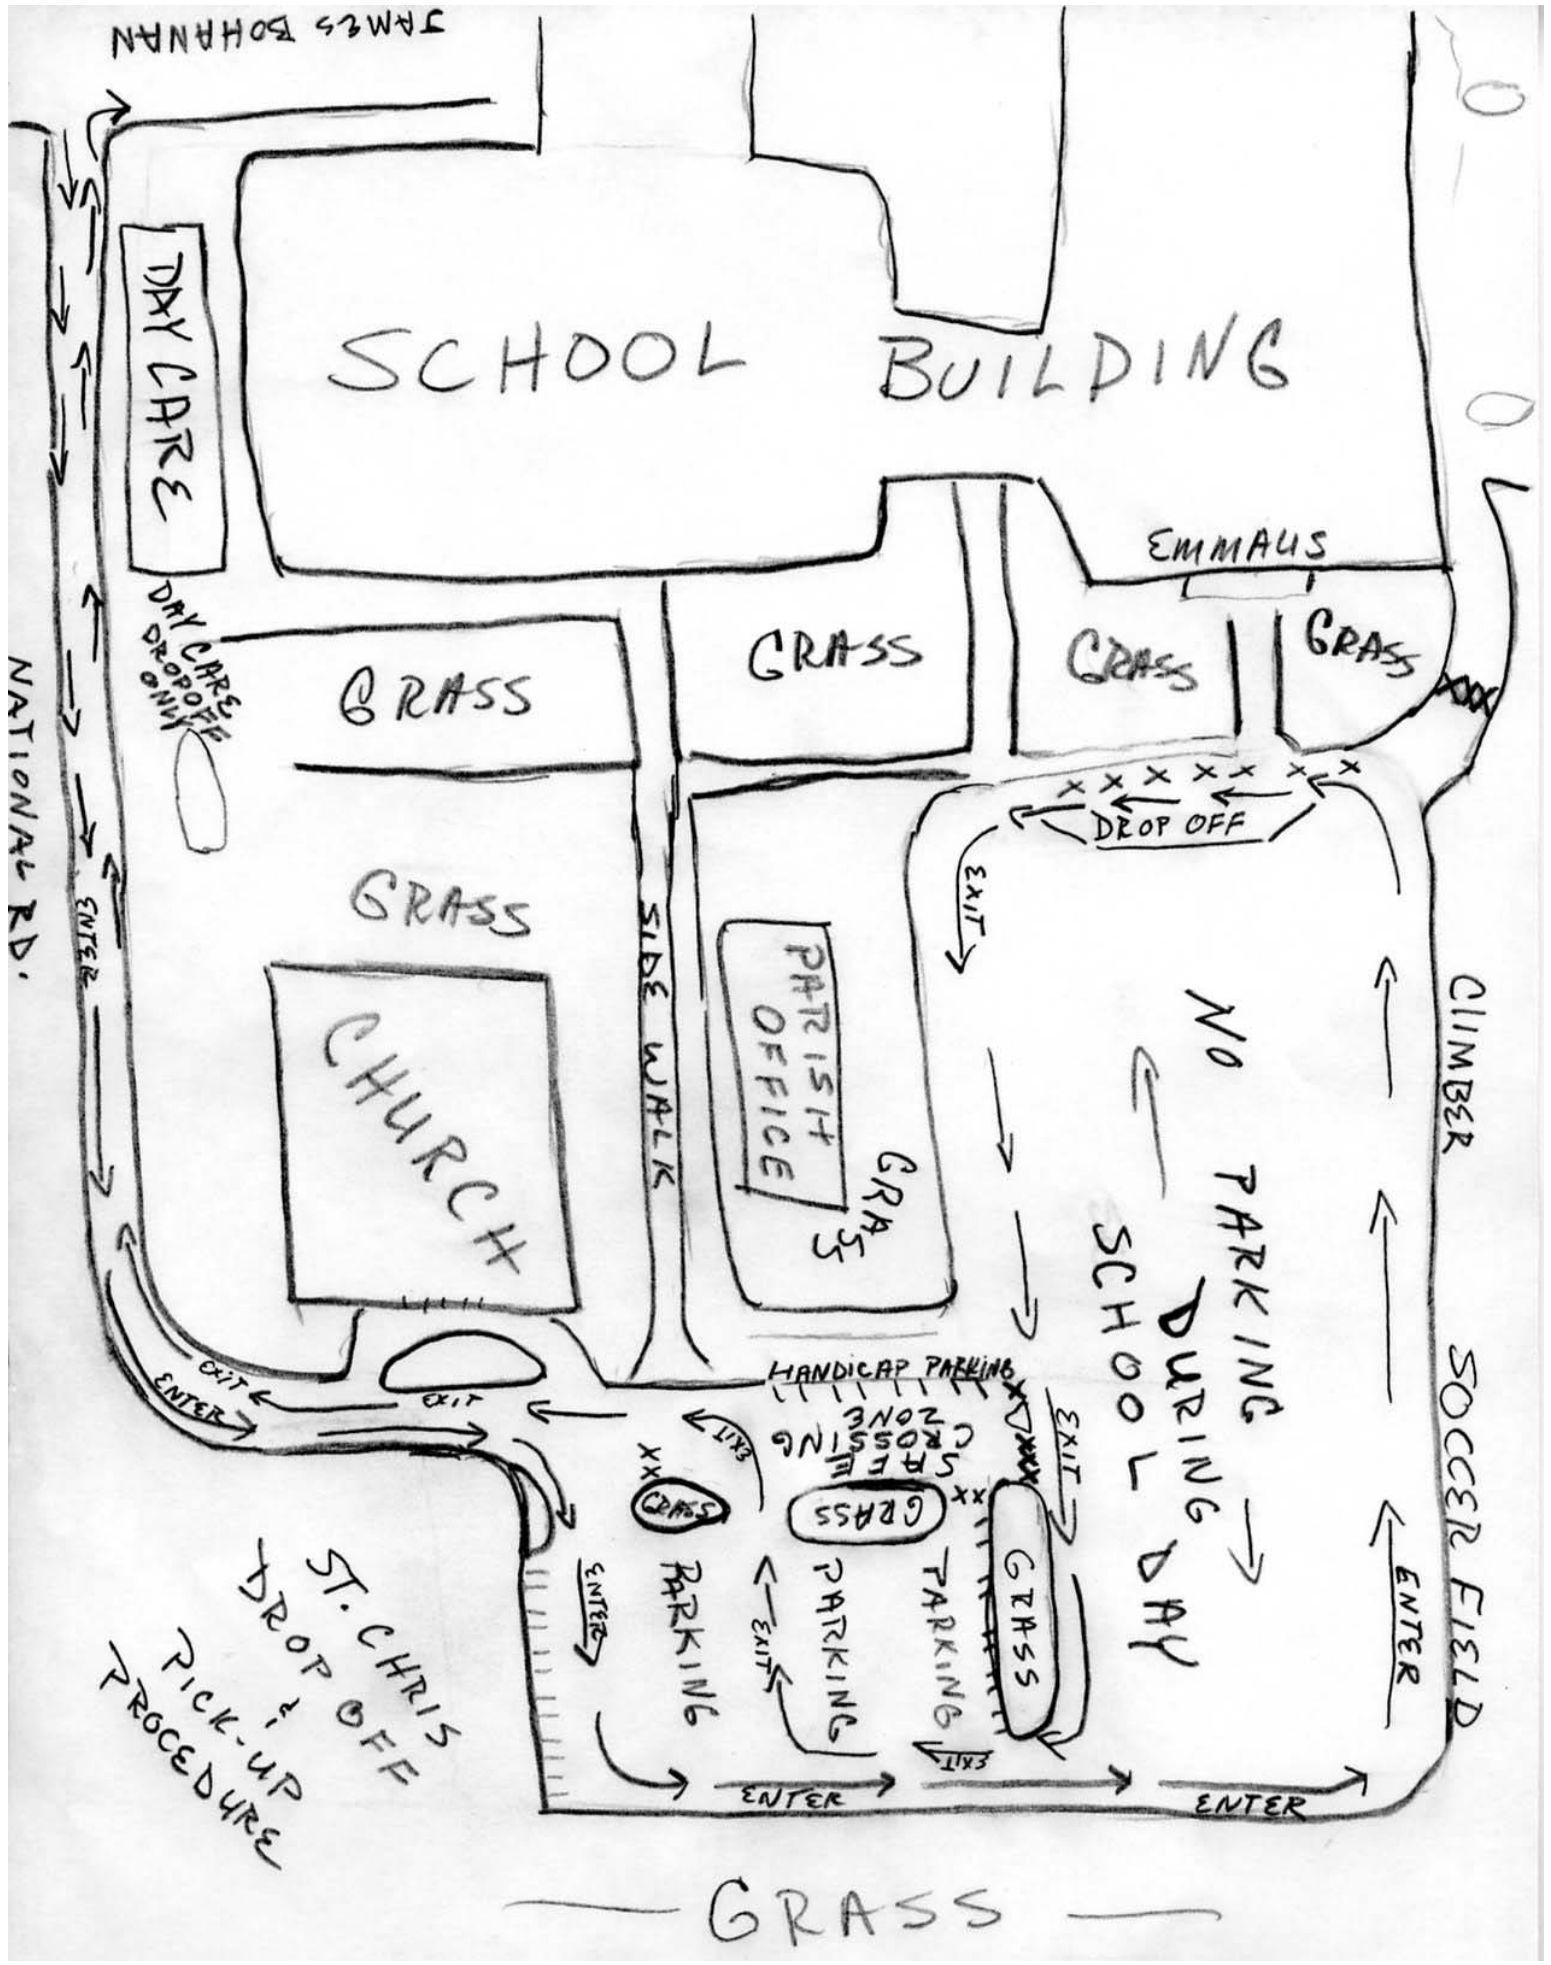 JAMES BOHANAN
DAY CARE
SCHOOL BUILDING
EMMAUS
DAY CARE
DROP OFF
ONLY
GRASS
GRASS
GRASS
GRASS
NATIONAL RD.
DROP OFF
EXIT
ENTER
GRASS
SIDE WALK
PARISH
OFFICE
GRASS
CHURCH
NO PARKING
DURING
SCHOOL DAY
CLIMBER
SOCCER FIELD
HANDICAP PARKING
EXIT
ENTER
EXIT
EXIT
SAFE
CROSSING
ZONE
EXIT
GRASS
GRASS
GRASS
ENTER
PARKING
EXIT
PARKING
PARKING
ENTER
EXIT
ENTER
ENTER
ST. CHRIS
DROP OFF
&
PICK-UP
PROCEDURE
GRASS